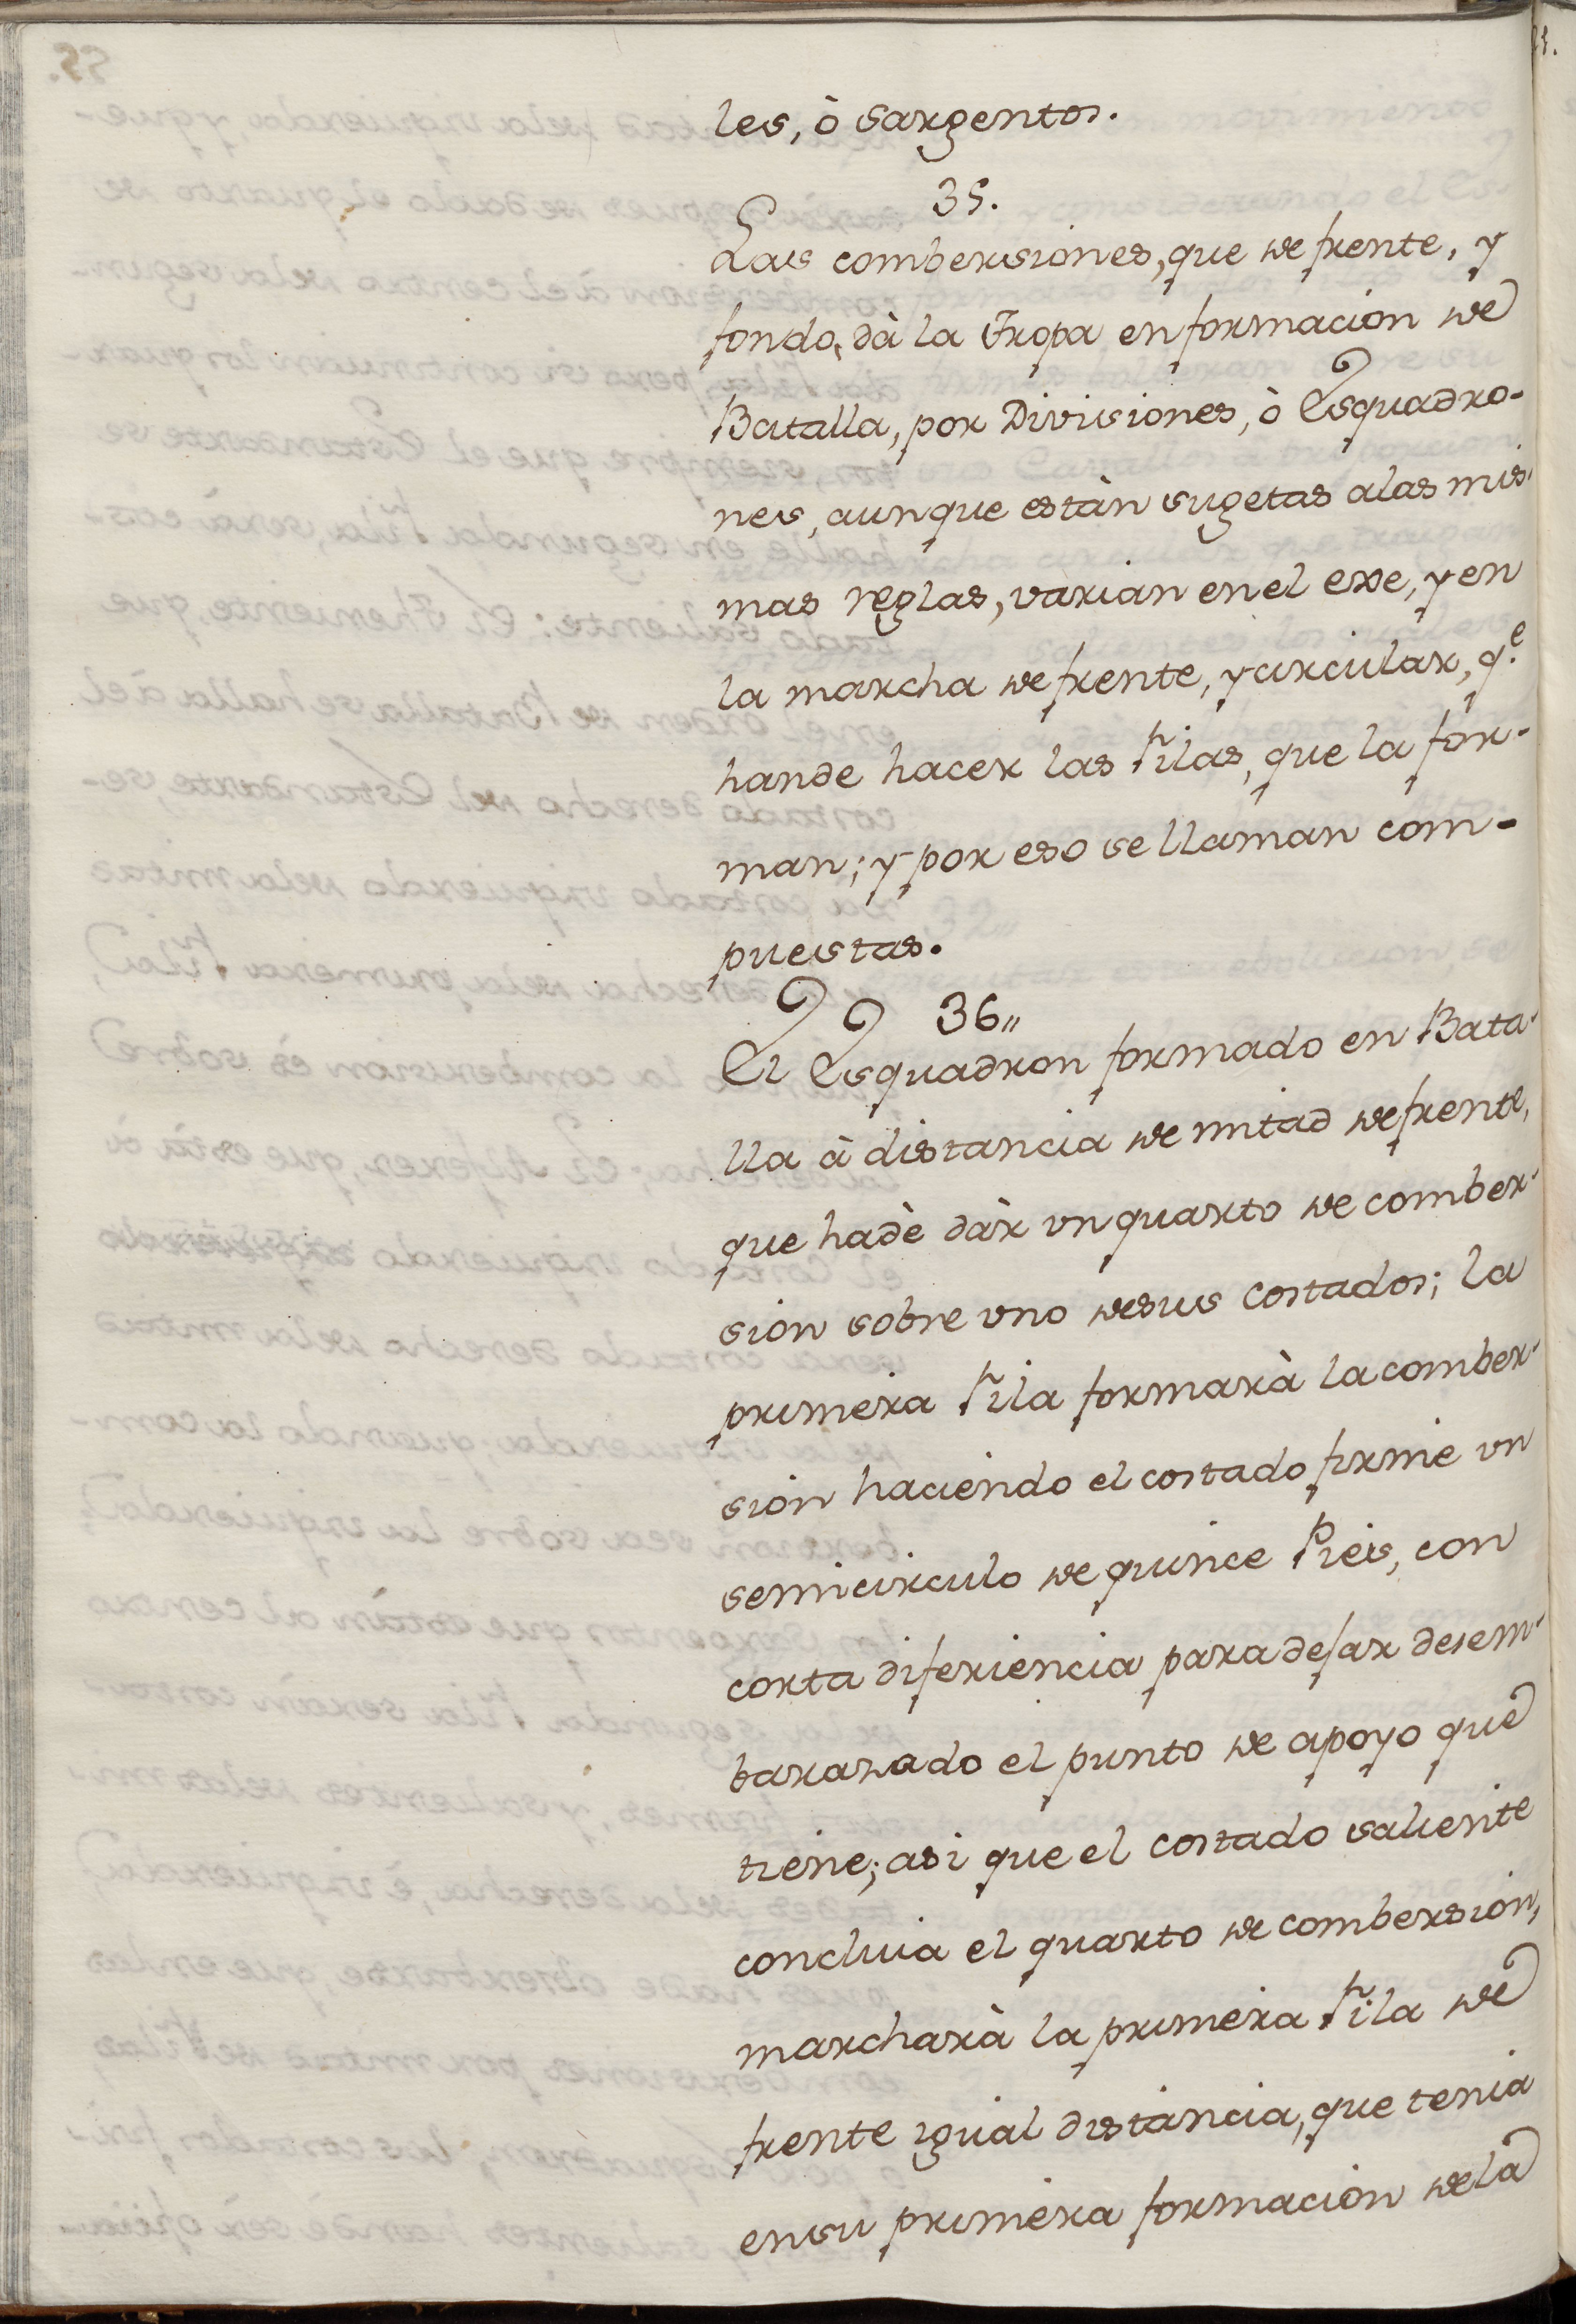 les, ò sargentos.
35.
Las combersiones, que de frente, y
fondo, dà la Tropa en formacion de
Batalla, por Divisiones, ò Esquadro-
nes, aunque estàn sugetas alas mis-
mas reglas, varian en el exe, y en
la marcha de frente, y circular, q.e
hande hacer las Filas, que la for-
man; y por eso se llaman com-
puestas.
36,,
El Esquadron formado en Bata-
lla à distancia de mitad de frente,
que hadè dàr vn quarto de comber-
sion sobre vno desus costados; la
primera Fila formarà la comber-
sion haciendo el costado firme vn
semicirculo de quince Pies, con
corta diferiencia para dejar desem-
barazado el punto de apoyo que
tiene; asi que el costado saliente
concluia el quarto de combersion,
marcharà la primera Fila de
frente igual distancia, que tenia
ensu primera formacion dela